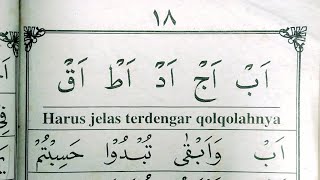 ١٨
اَبْ اَجْ اَدْ اَطْ اَقْ
Harus jelas terdengar qolqolahnya
اَبْ وَاَبْقٰى تُبْدُوْا حَسِبْتُمْ